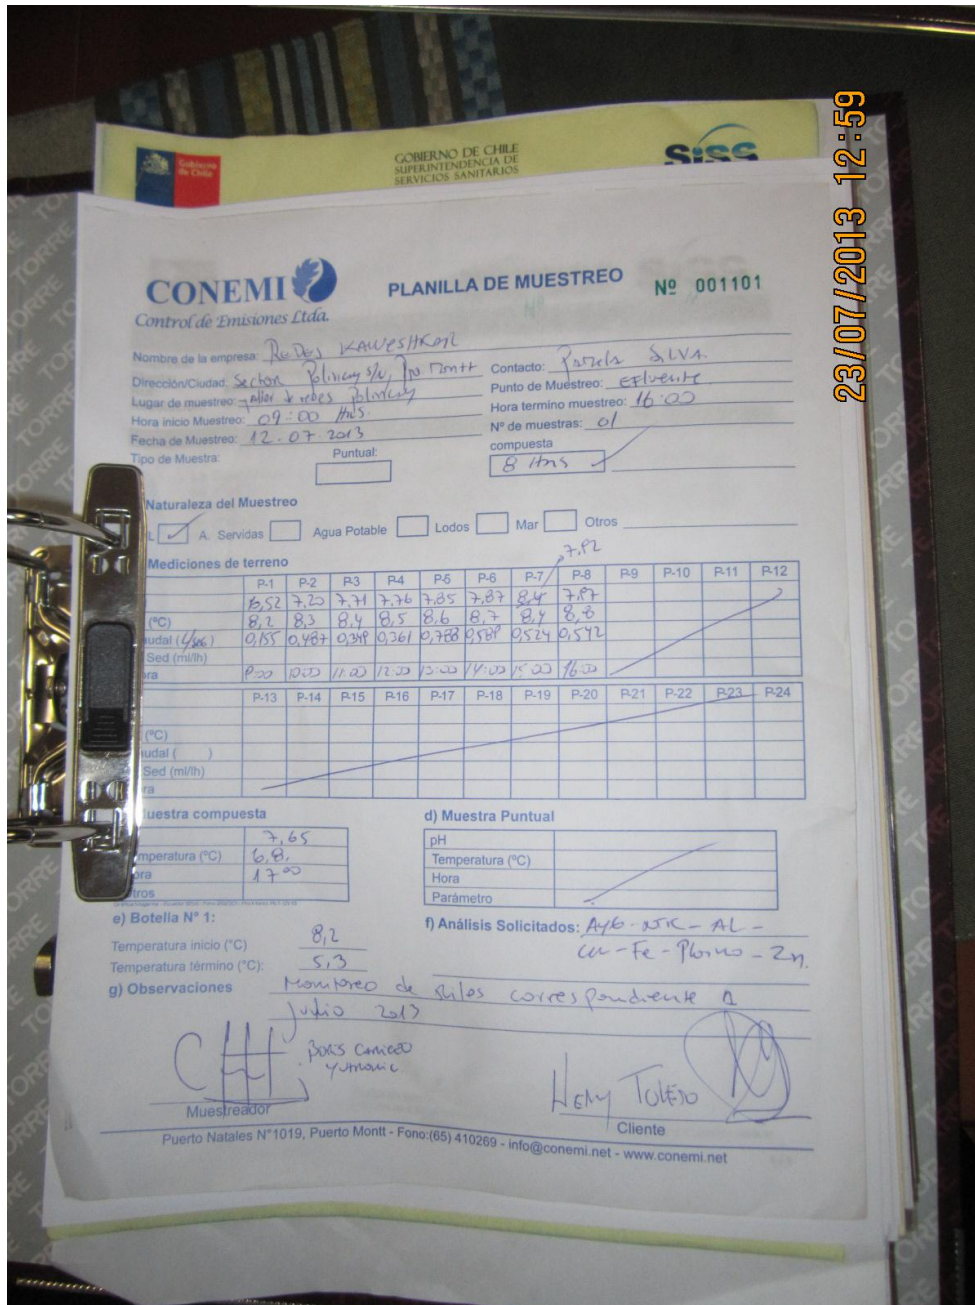 Gobierno de Chile
GOBIERNO DE CHILE
SUPERINTENDENCIA DE
SERVICIOS SANITARIOS
Siss
23/07/2013 12:59
CONEMI
Control de Emisiones Ltda.
PLANILLA DE MUESTREO
Nº 001101
Nombre de la empresa: Redes KAWESHKAR
Dirección/Ciudad: Sector Polincay s/n, Pto. Montt Contacto: Pamela SILVA
Lugar de muestreo: taller de redes Polincay Punto de Muestreo: Efluente
Hora inicio Muestreo: 09:00 Hrs. Hora termino muestreo: 16:00
Fecha de Muestreo: 12.07.2013 Nº de muestras: 01
Tipo de Muestra: Puntual: compuesta
8 Hrs
Naturaleza del Muestreo
A. Servidas Agua Potable Lodos Mar Otros
Mediciones de terreno 7,92
P-1 P-2 P-3 P-4 P-5 P-6 P-7 P-8 P-9 P-10 P-11 P-12
6,52 7,20 7,71 7,76 7,85 7,87 8,4 7,97
(ºC) 8,2 8,3 8,4 8,5 8,6 8,7 8,4 8,8
udal (L/seg) 0,155 0,487 0,349 0,361 0,788 0,589 0,524 0,542
Sed (ml/lh)
ra 9:00 10:00 11:00 12:00 13:00 14:00 15:00 16:00
P-13 P-14 P-15 P-16 P-17 P-18 P-19 P-20 P-21 P-22 P-23 P-24
(ºC)
udal ( )
Sed (ml/lh)
ra
uestra compuesta
7,65
mperatura (ºC) 6,8,
ora 17:00
tros
d) Muestra Puntual
pH
Temperatura (ºC)
Hora
Parámetro
e) Botella Nº 1:
Temperatura inicio (ºC) 8,2
Temperatura término (ºC): 5,3
f) Análisis Solicitados: AyG - NTK - AL -
Cu - Fe - Plomo - Zn.
g) Observaciones Monitoreo de Riles correspondiente a
Julio 2013
Boris
Muestreador
Heny Toledo
Cliente
Puerto Natales Nº1019, Puerto Montt - Fono:(65) 410269 - info@conemi.net - www.conemi.net